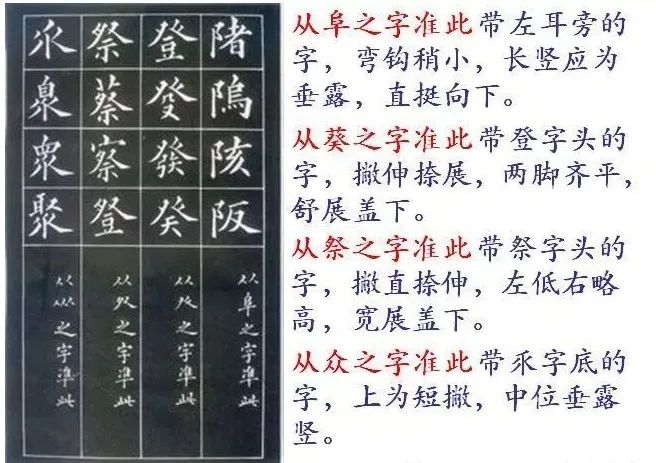 陼隖陔阪
从阜之字準此
登發發癸
从癶之字準此
祭蔡察登
从之字準此
乑臮眾聚
从㐺之字準此
从阜之字准此带左耳旁的
字，弯钩稍小，长竖应为
垂露，直挺向下。
从葵之字准此带登字头的
字，撇伸捺展，两脚齐平，
舒展盖下。
从祭之字准此带祭字头的
字，撇直捺伸，左低右略
高，宽展盖下。
从众之字准此带乑字底的
字，上为短撇，中位垂露
竖。